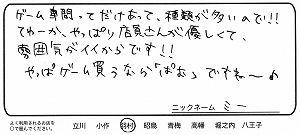 ゲーム専門ってだけあって、種類が多いので!!
てゆーか、やっぱり店員さんが優しくて、
雰囲気がイイからです!!
やっぱゲーム買うなら「ぱお」ですね〜♪
ニックネーム ミー
よく利用されるお店を
○で囲んでください。
立川 小作 羽村 昭島 青梅 高幡 堀之内 八王子